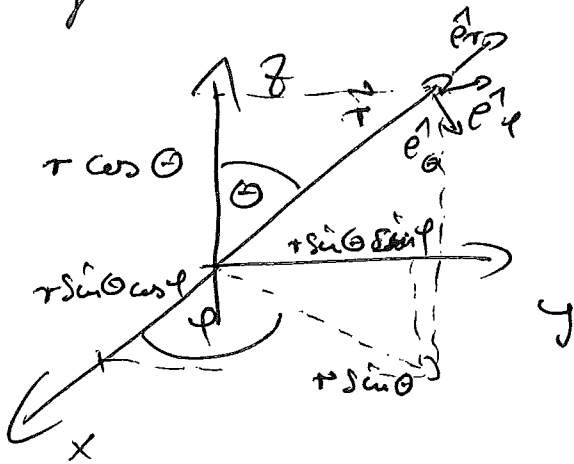 êr
z
r
êφ
êθ
r cos θ
θ
r sinθ sinφ
r sinθ cosφ
φ
y
r sinθ
x